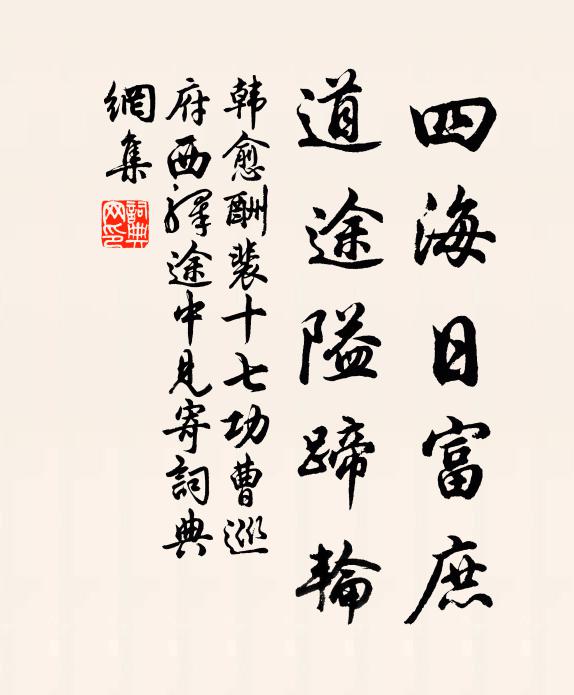 四海日富庶
道途隘蹄輪
韩愈酬裴十七功曹巡
府西驛途中見寄詞典
網集
詞典網印